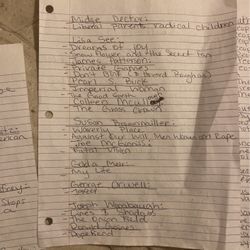 Midge Decter:
- Liberal Parents radical children
Lisa See:
- Dreams of Joy
- Snow Flower and the Secret Fan
James Patterson:
- Private Games
- Don't Blink (& Howard Roughan)
Pearl S Buck
- Imperial Woman
- The Good Earth
Colleen McCullo
- The Grass Crown
Susan Brownmiller:
- Waverly Place
- Against Our Will, Men Women and Rape
Joe McGinnis:
- Fatal Vision
Golda Meir:
- My Life
George Orwell:
Joseph Wambaugh:
- Lines & Shadows
- The Onion Field